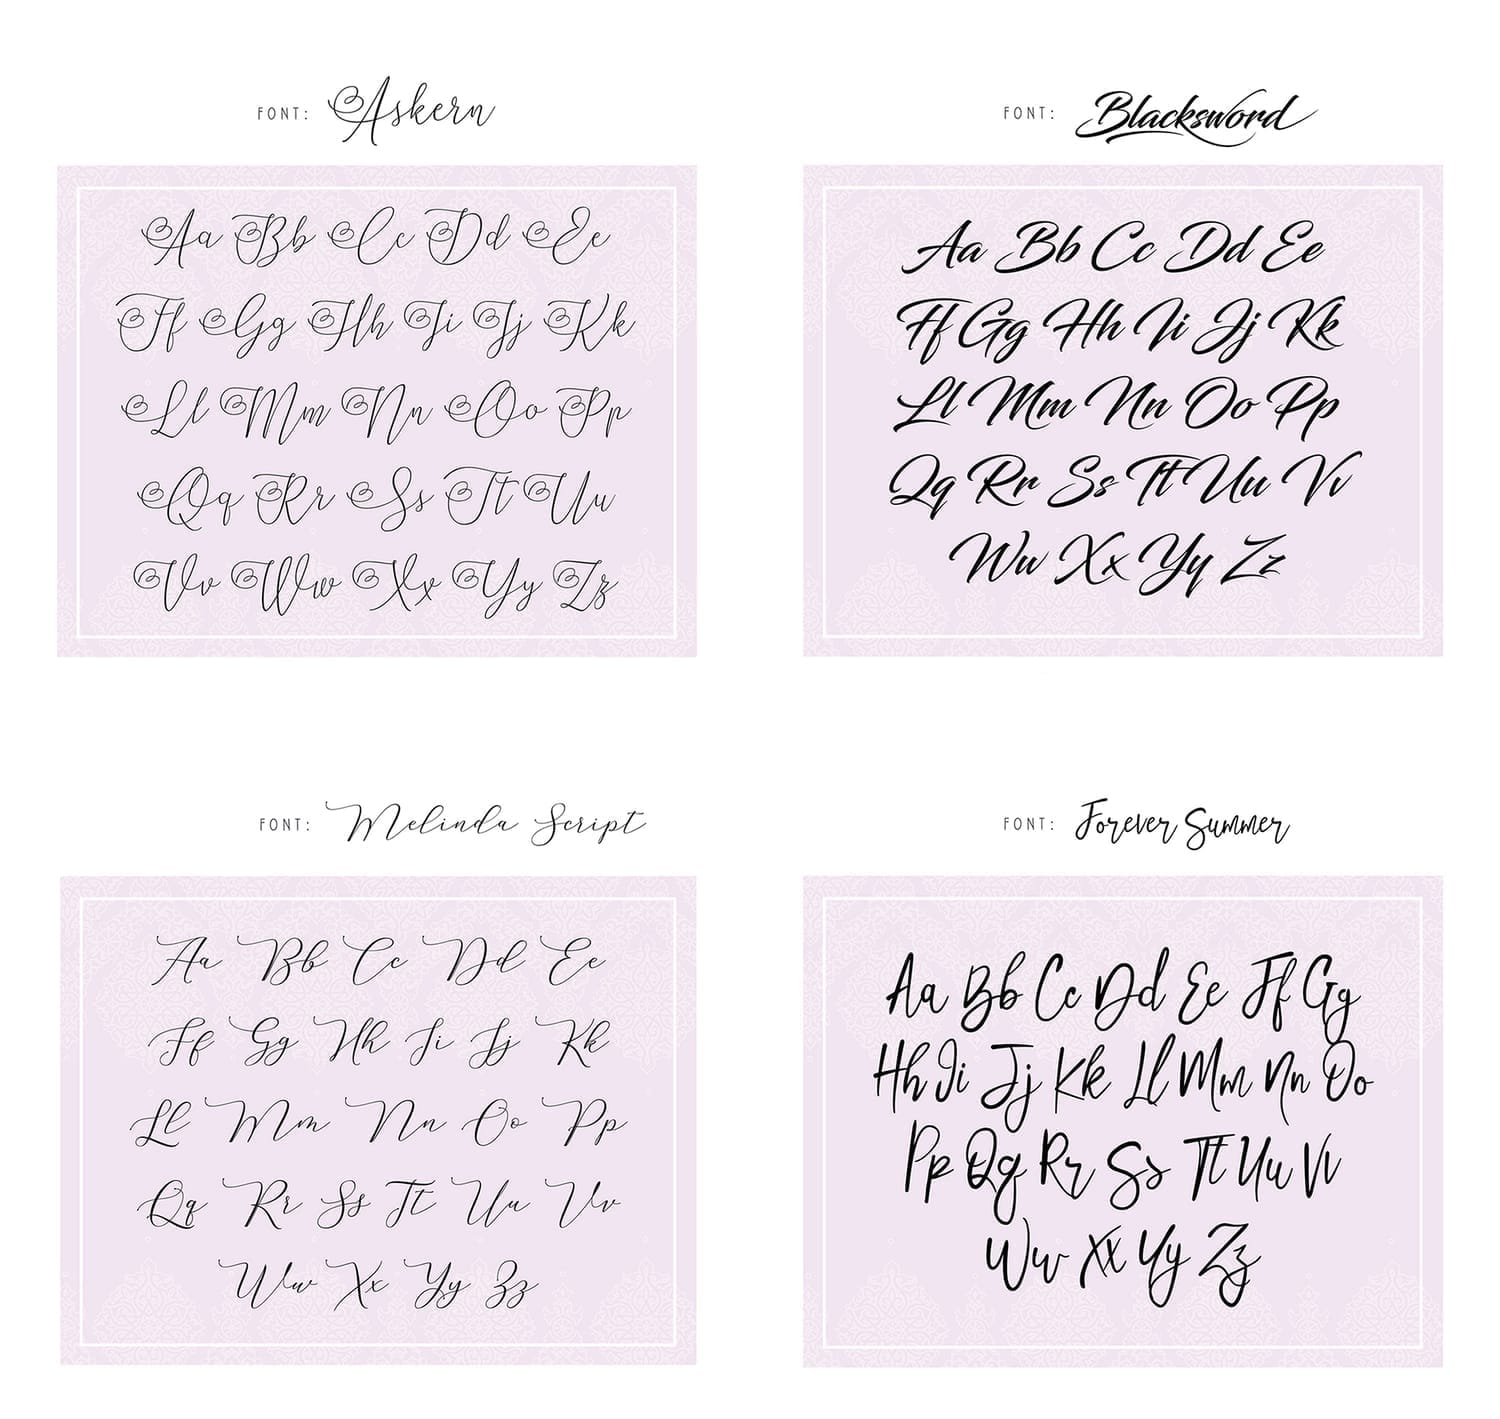 FONT: Askern
Aa Bb Cc Dd Ee
Ff Gg Hh Ii Jj Kk
Ll Mm Nn Oo Pp
Qq Rr Ss Tt Uu
Vv Ww Xx Yy Zz
FONT: Blacksword
Aa Bb Cc Dd Ee
Ff Gg Hh Ii Jj Kk
Ll Mm Nn Oo Pp
Qq Rr Ss Tt Uu Vv
Ww Xx Yy Zz
FONT: Melinda Script
Aa Bb Cc Dd Ee
Ff Gg Hh Ii Jj Kk
Ll Mm Nn Oo Pp
Qq Rr Ss Tt Uu Vv
Ww Xx Yy Zz
FONT: Forever Summer
Aa Bb Cc Dd Ee Ff Gg
Hh Ii Jj Kk Ll Mm Nn Oo
Pp Qq Rr Ss Tt Uu Vv
Ww Xx Yy Zz